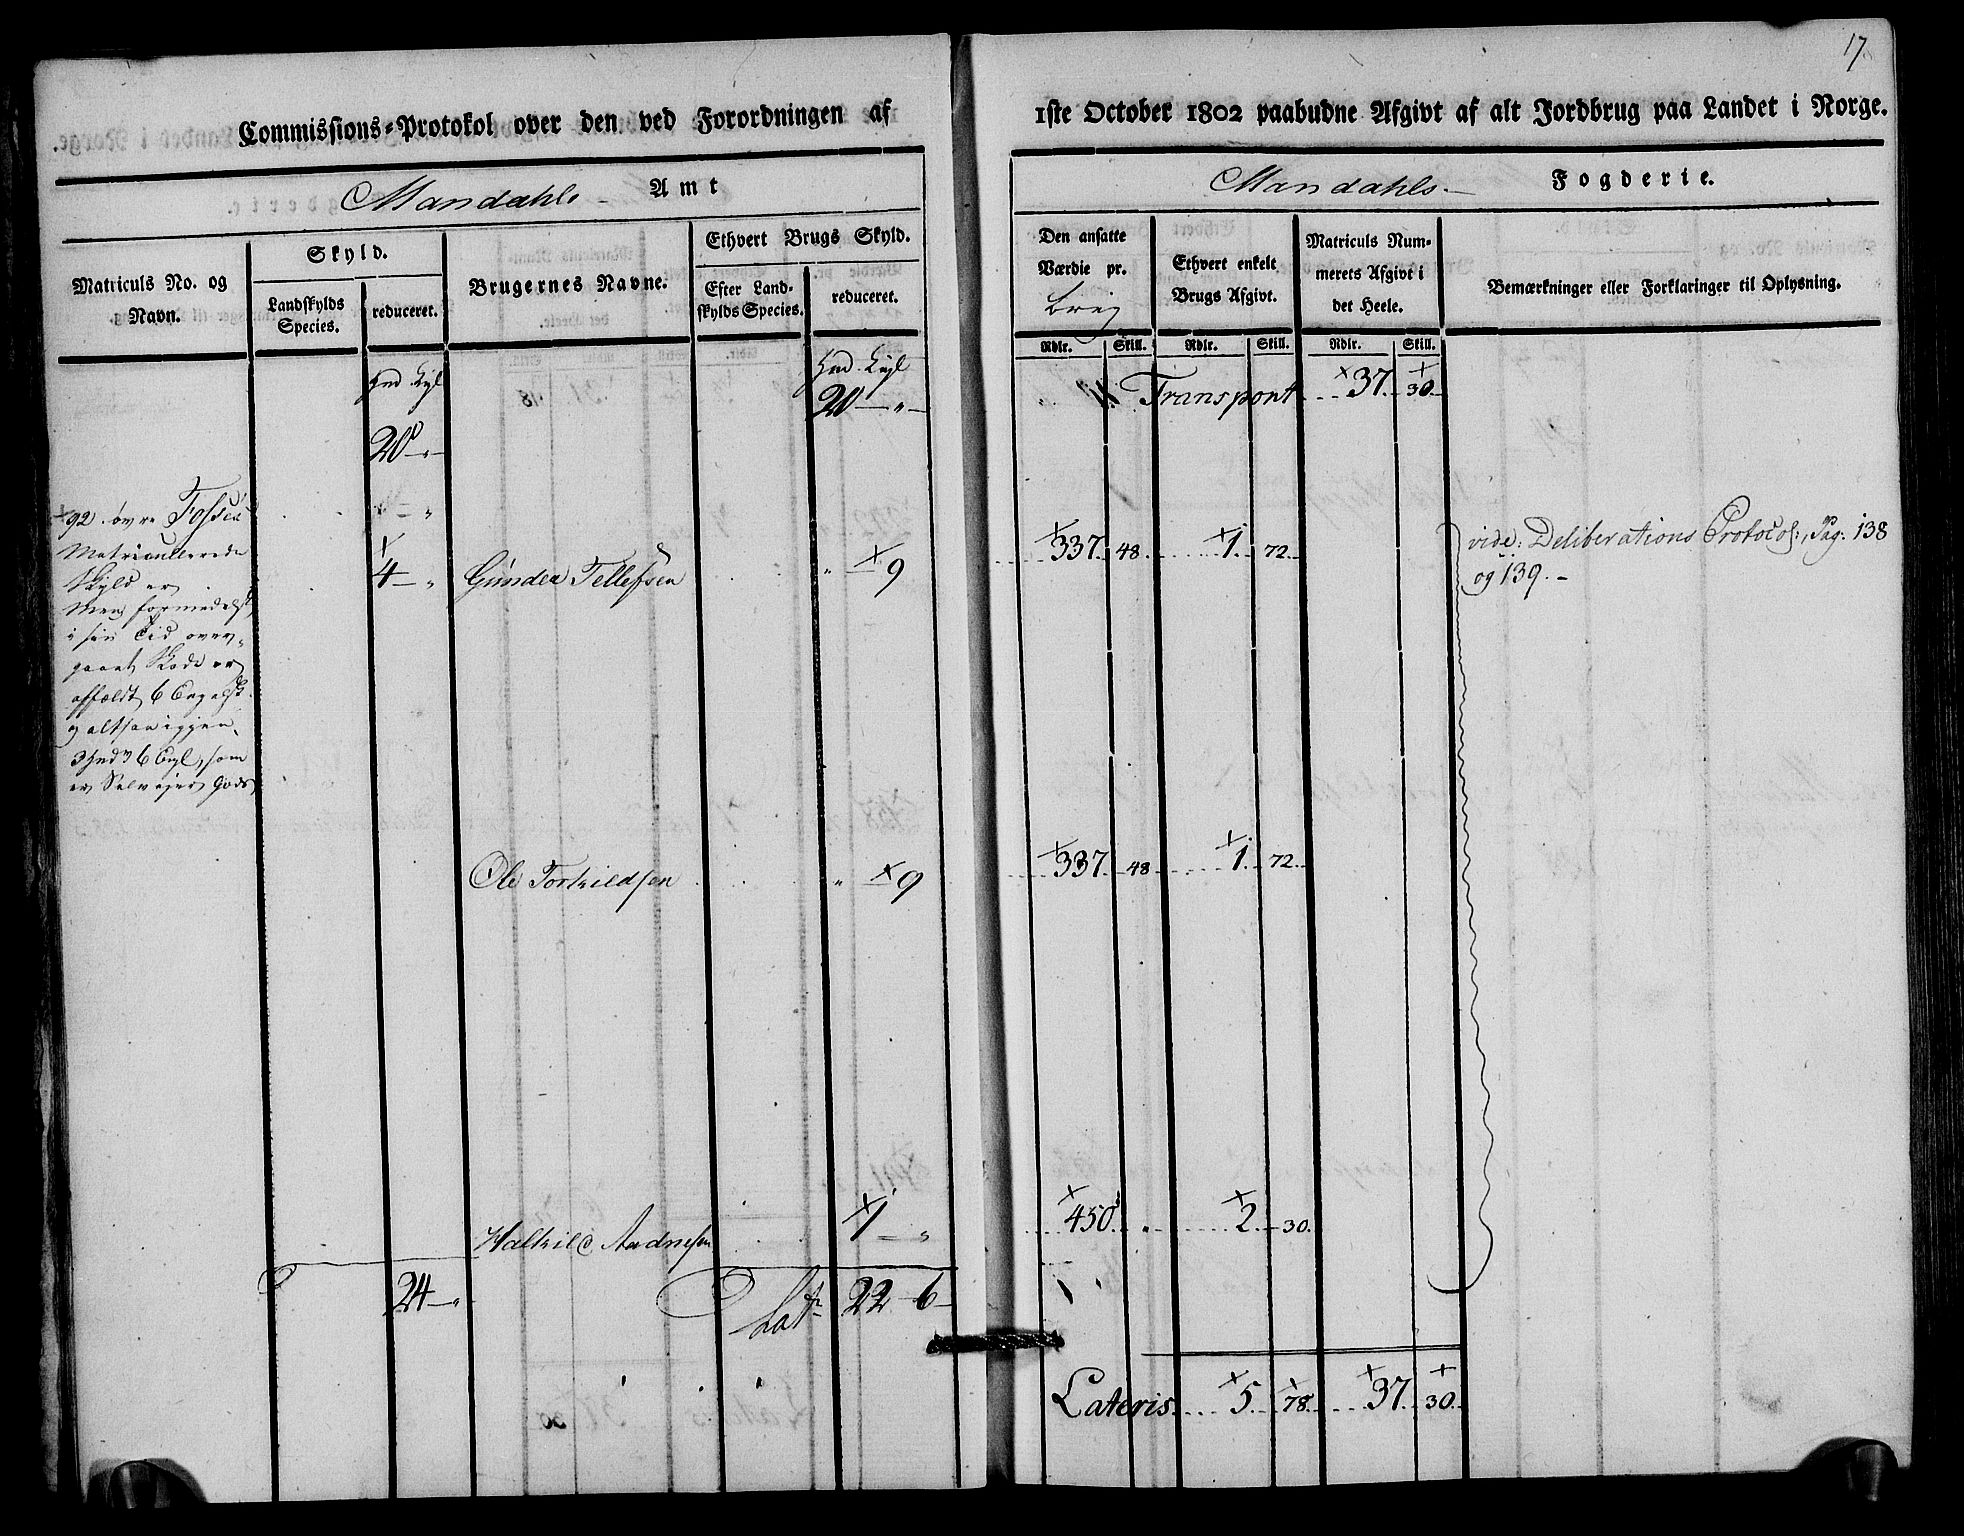 17
Commissions-Protokol over den ved Forordningen af 1ste October 1802 paabudne Afgivt af alt Jordbrug paa Landet i Norge.
Mandahls Amt
Mandahls Fogderie.
Matriculs No. og Navn.
Skyld.
Landskylds Species.
reduceret.
Brugernes Navne.
Ethvert Brugs Skyld.
Efter Landskylds Species.
reduceret.
Den ansatte Værdie pr.
Ethvert enkelt Brugs Afgivt.
Matriculs Nummerets Afgivt i det Heele.
Bemærkninger eller Forklaringer til Oplysning.
Rdlr. Skill. Rdlr. Skill. Rdlr. Skill.
20 20 Transport 37. 30.
92. øvre
Matriculerede
Skyld er 4 Gunder Tellefsen 9 337. 48. 1. 72. vide: Deliberations Protocol:, Pag: 138
og 139.
Men formedelst
i sin Tid over-
gaaet Skade er
affældt 6 Engelsk
og altsaa igjen
3 Hud 6 Engl, som
er Selvejer Gods
Ole Torkildsen 9 337. 48. 1. 72.
Halkild Aadnesen 1 450. 2. 30.
24 Lat 22 6
Lateris 5. 78. 37. 30.